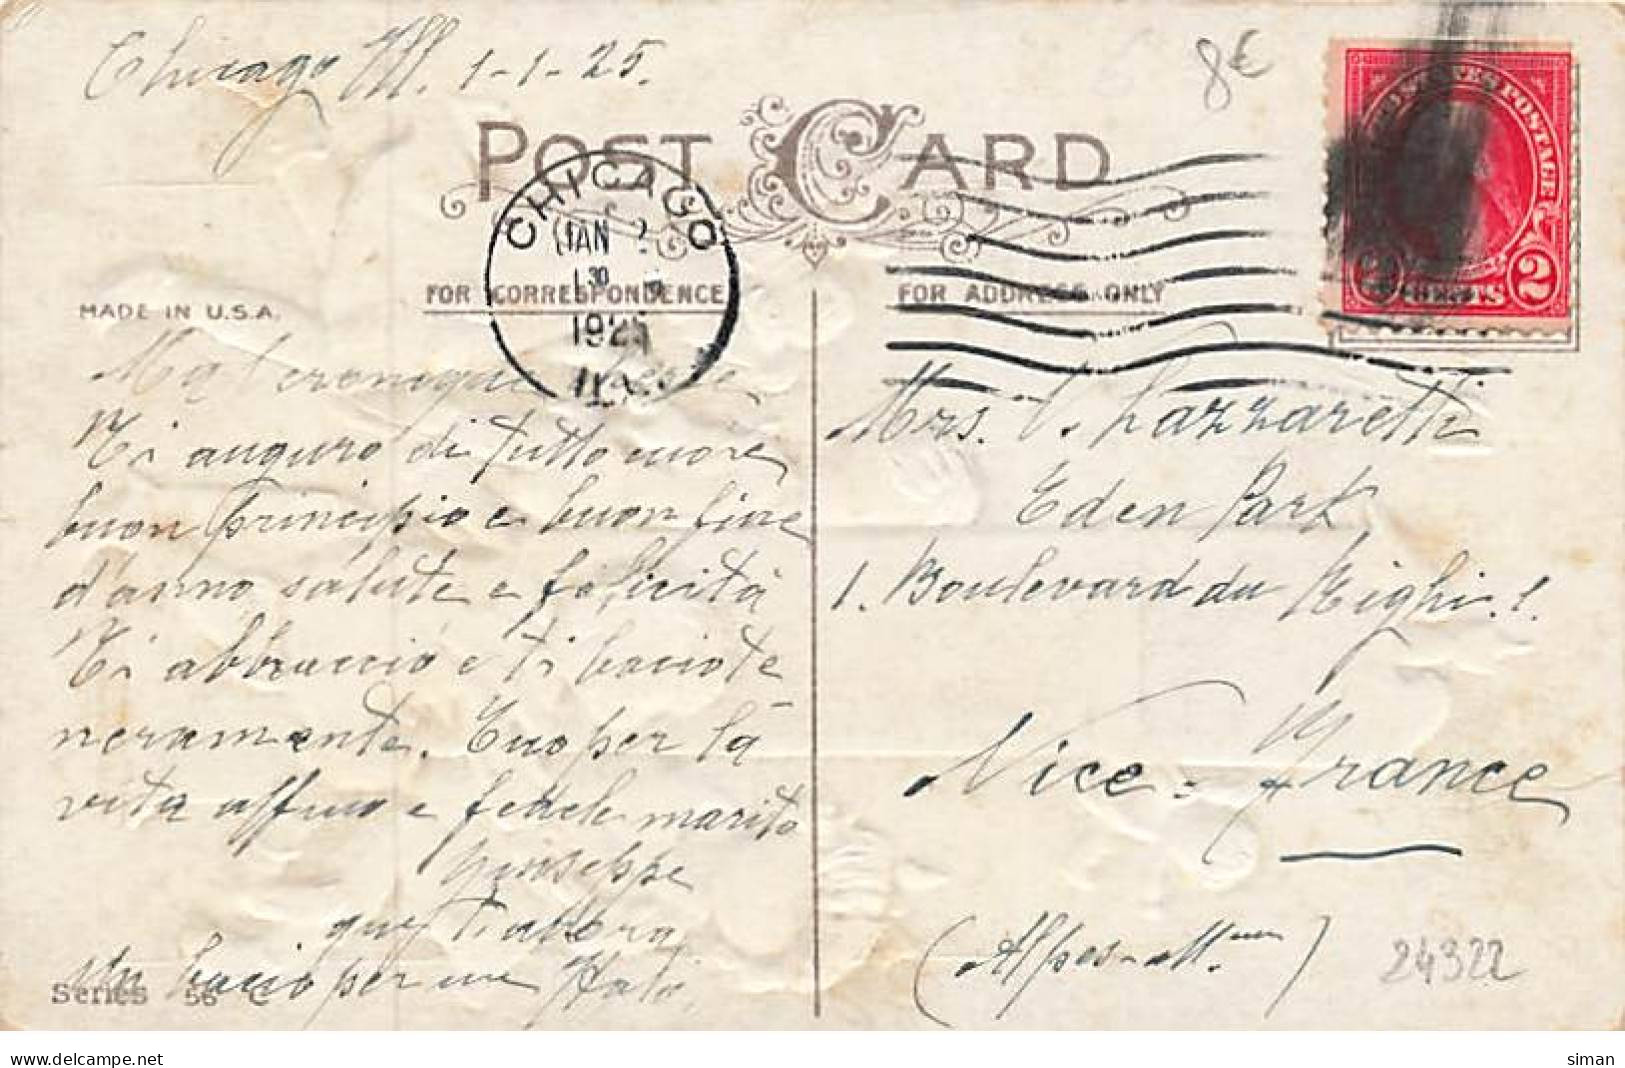 Chicago Ill. 1-1-25.
8€
POST CARD
CHICAGO
JAN 2
1 30
1925
ILL.
UNITED STATES POSTAGE
2 CENTS 2
FOR CORRESPONDENCE
FOR ADDRESS ONLY
MADE IN U.S.A.
Ti auguro di tutto cuore
buon principio e buon fine
d'anno salute e felicità
Ti abbraccio e ti bacio te
neramente. Tuo per la
vita affmo e fedele marito
Giuseppe
que t'adora
Un bacio per
Series 56 C
Mrs. V. Lazzaretti
Eden Park
1. Boulevard du Righi. 1.
Nice = France
(Alpes-Mmes)
24322
www.delcampe.net
siman